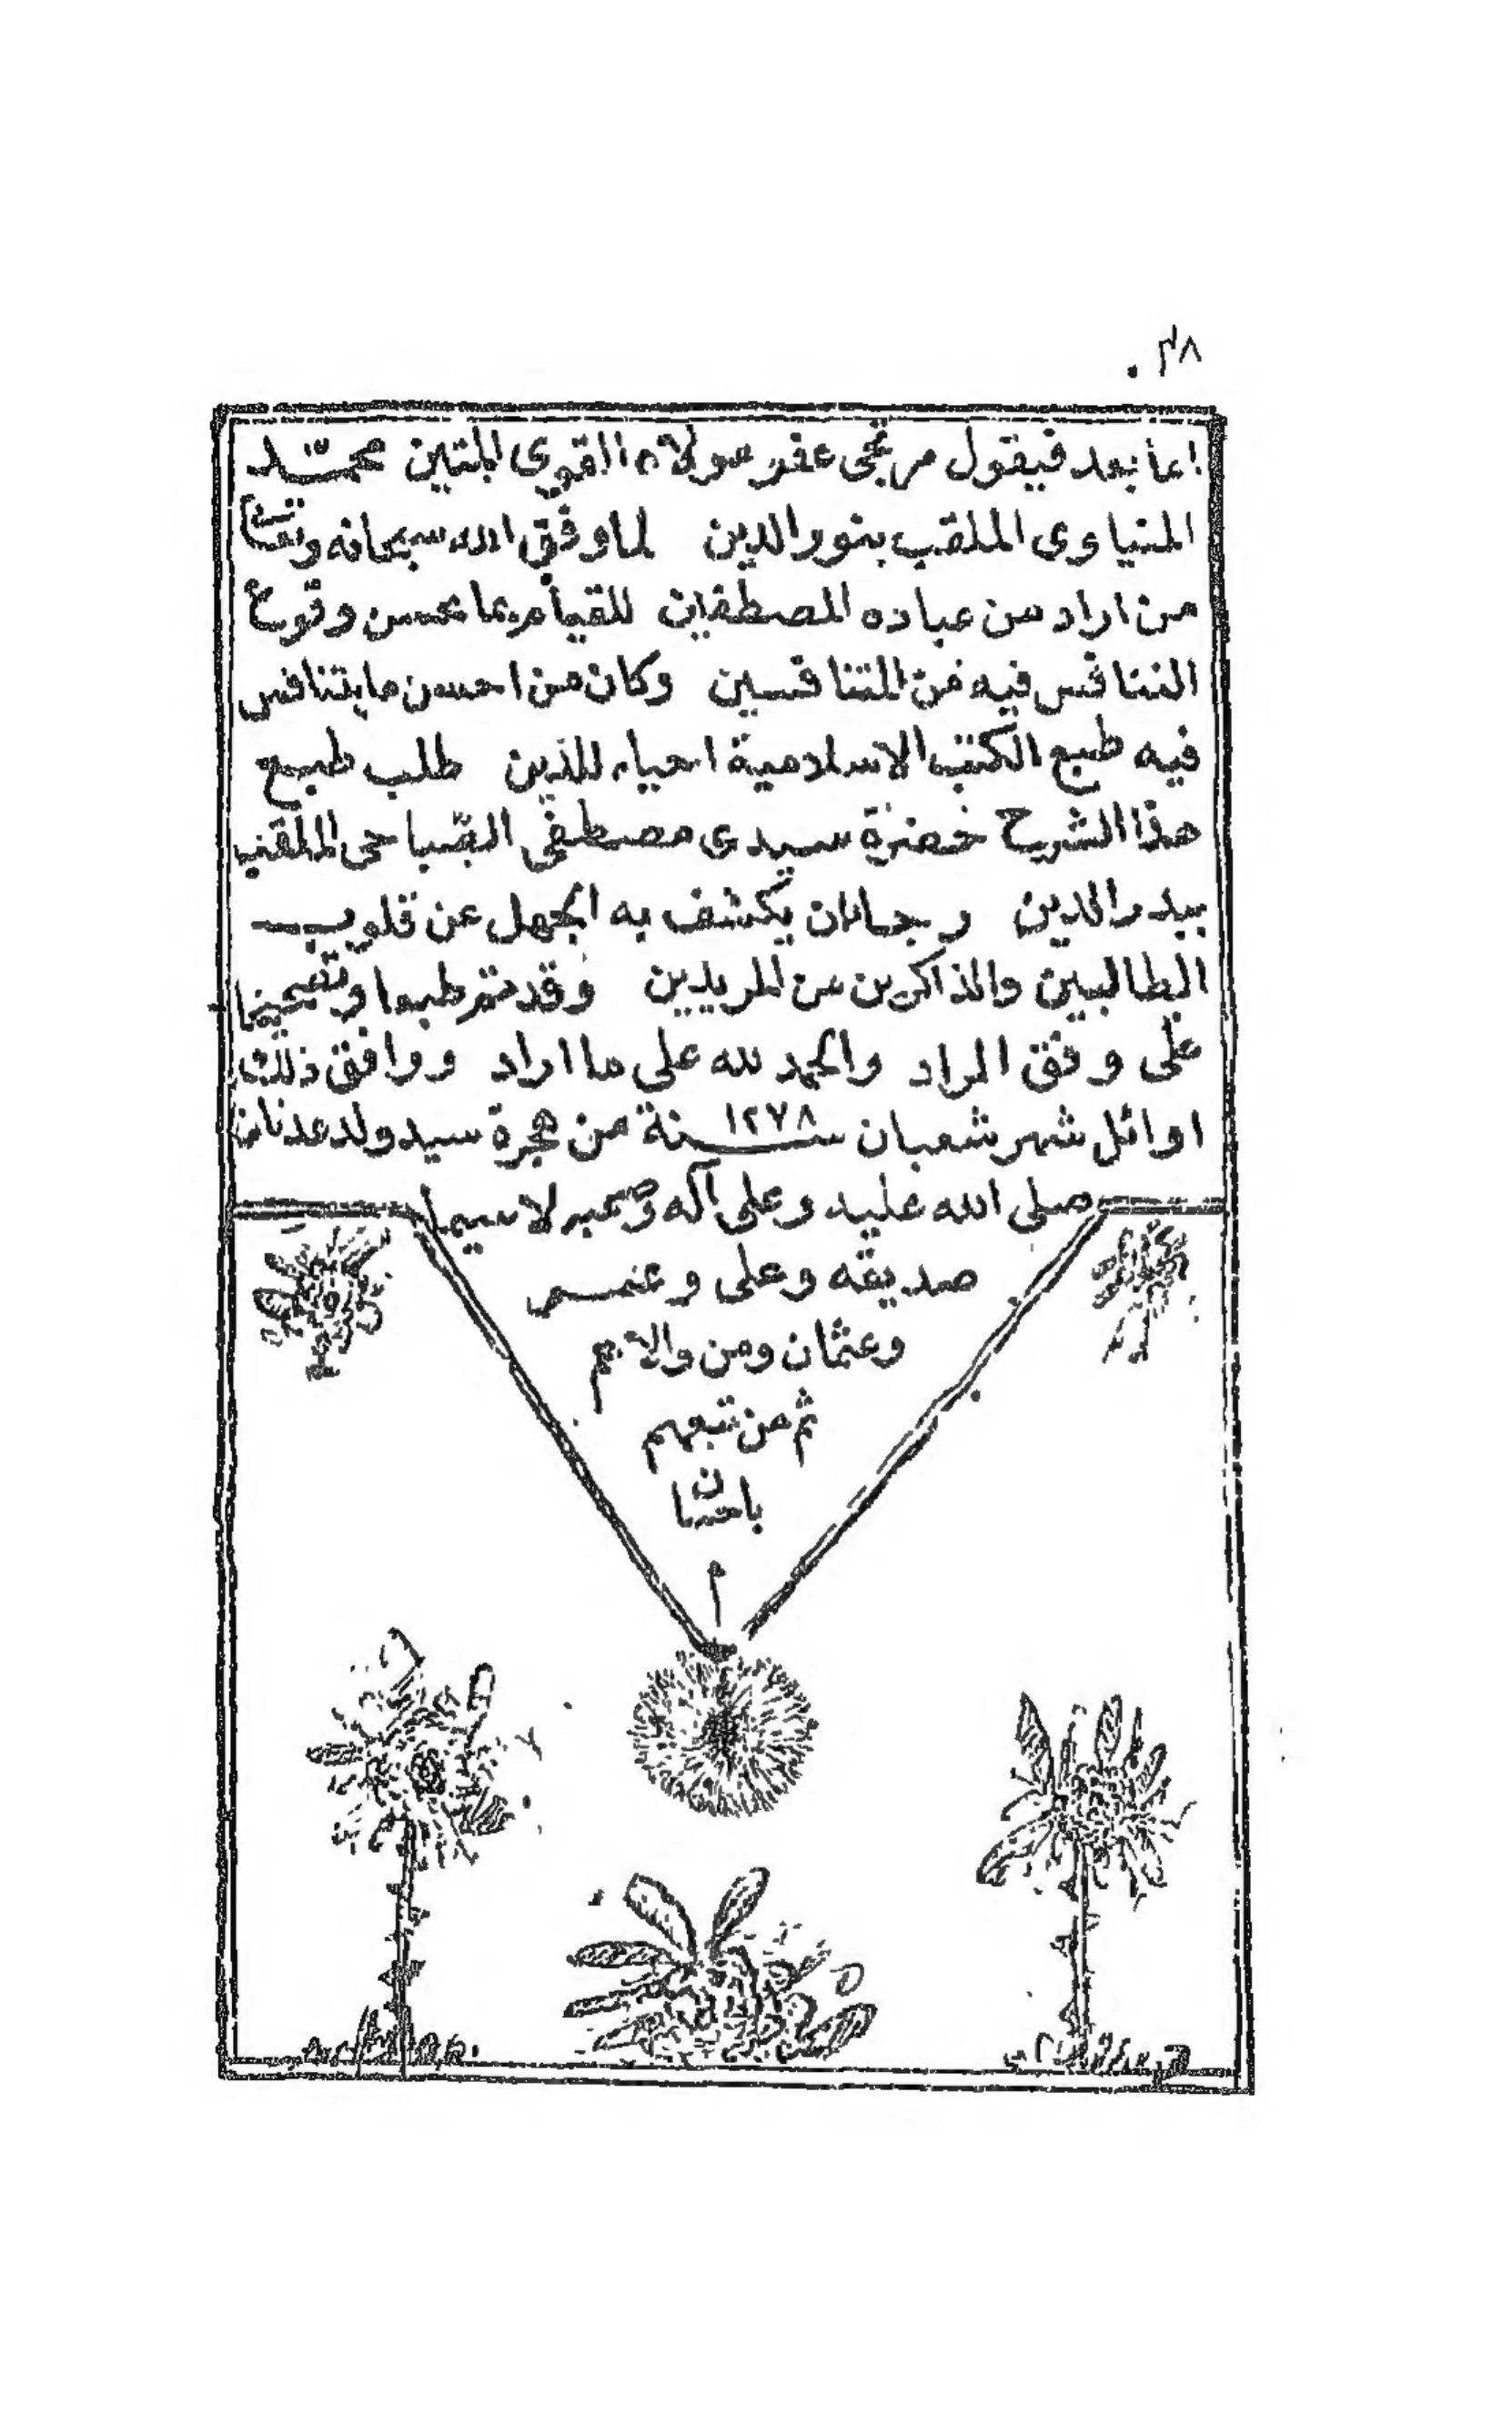 ٣٨
اما بعد فيقول مرتجى عفو مولاه القوى المتين محمد
المنياوى الملقب بنور الدين لما وفق الله سبحانه وتعالى
من اراد من عباده المصطفين للقيام بما يحسن وقوع
التنافس فيه من المتنافسين وكان من احسن ما يتنافس
فيه طبع الكتب الاسلامية احياء للدين طلب طبع
هذا الشرح حضرة سيدى مصطفى الصباحى الملقب
ببدر الدين رجا ان يكشف به الجهل عن قلوب
الطالبين والذاكرين من المريدين وقد تم طبعا وتصحيحا
على وفق المراد والحمد لله على ما اراد ووافق ذلك
اوائل شهر شعبان سنة ١٢٧٨ من هجرة سيد ولد عدنان
صلى الله عليه وعلى آله وصحبه لاسيما
صديقه وعلى وعمر
وعثمان ومن والاهم
ثم من تبعهم
باحسان
م